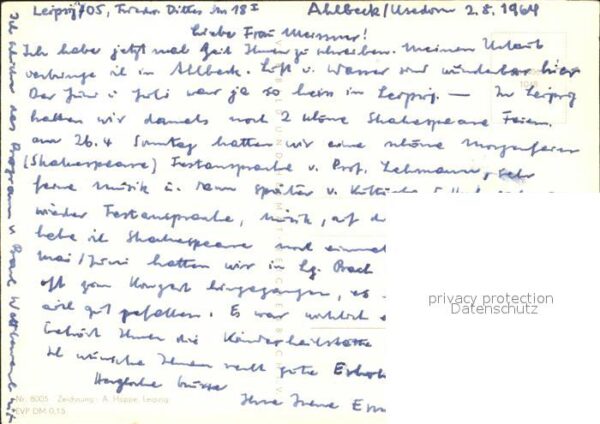 Leipzig 705, Friedr. Dittes Str. 18 I
Ahlbeck/Usedom 2.8.1964
Liebe Frau Meissner!
Ich habe jetzt mal Zeit Ihnen zu schreiben. Meinen Urlaub
verbringe ich in Ahlbeck. Luft u. Wasser sind wunderbar hier
Der Juni u. Juli war ja so heiss in Leipzig. — In Leipzig
hatten wir damals noch 2 schöne Shakespeare Feiern.
am 26.4 Sonntag hatten wir eine schöne Morgenfeier
(Shakespeare) Festansprache v. Prof. Lehmann, sehr
feine Musik u. dann später v.
wieder Festansprache, Musik, auf d
habe ich Shakespeare noch einmal
Mai/Juni hatten wir in Lpg. Bach
oft zum Konzert hingegangen, es
viel gut gefallen. Es war wirklich
Gehört Ihnen die Kinderheilstätte
Ich wünsche Ihnen recht gute Erhol
Herzliche Grüsse
Ihre Irene
Ich schicke das Programm v. Bach Wettbewerb mit
privacy protection
Datenschutz
Nr. 8005 Zeichnung: A. Hoppe, Leipzig
EVP DM 0,15